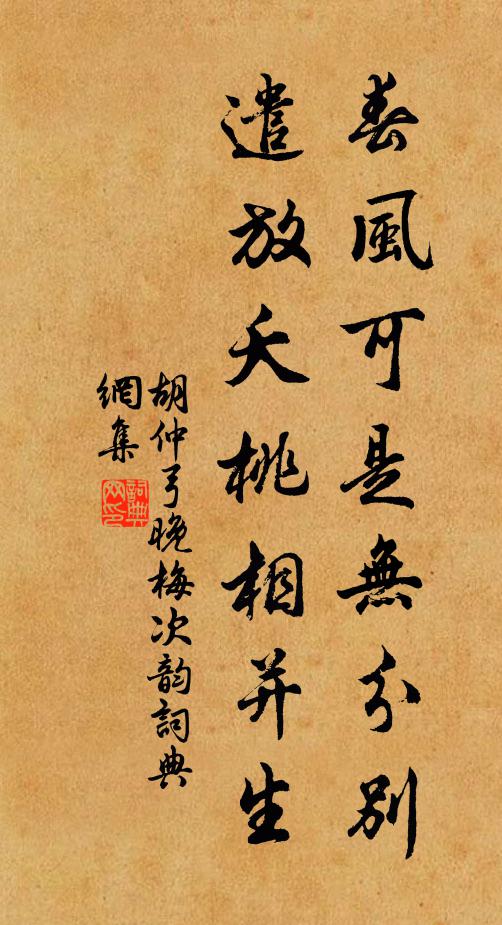 春風可是無分別
遣放夭桃相并生
胡仲弓晚梅次韵詞典
網集
詞典
网印